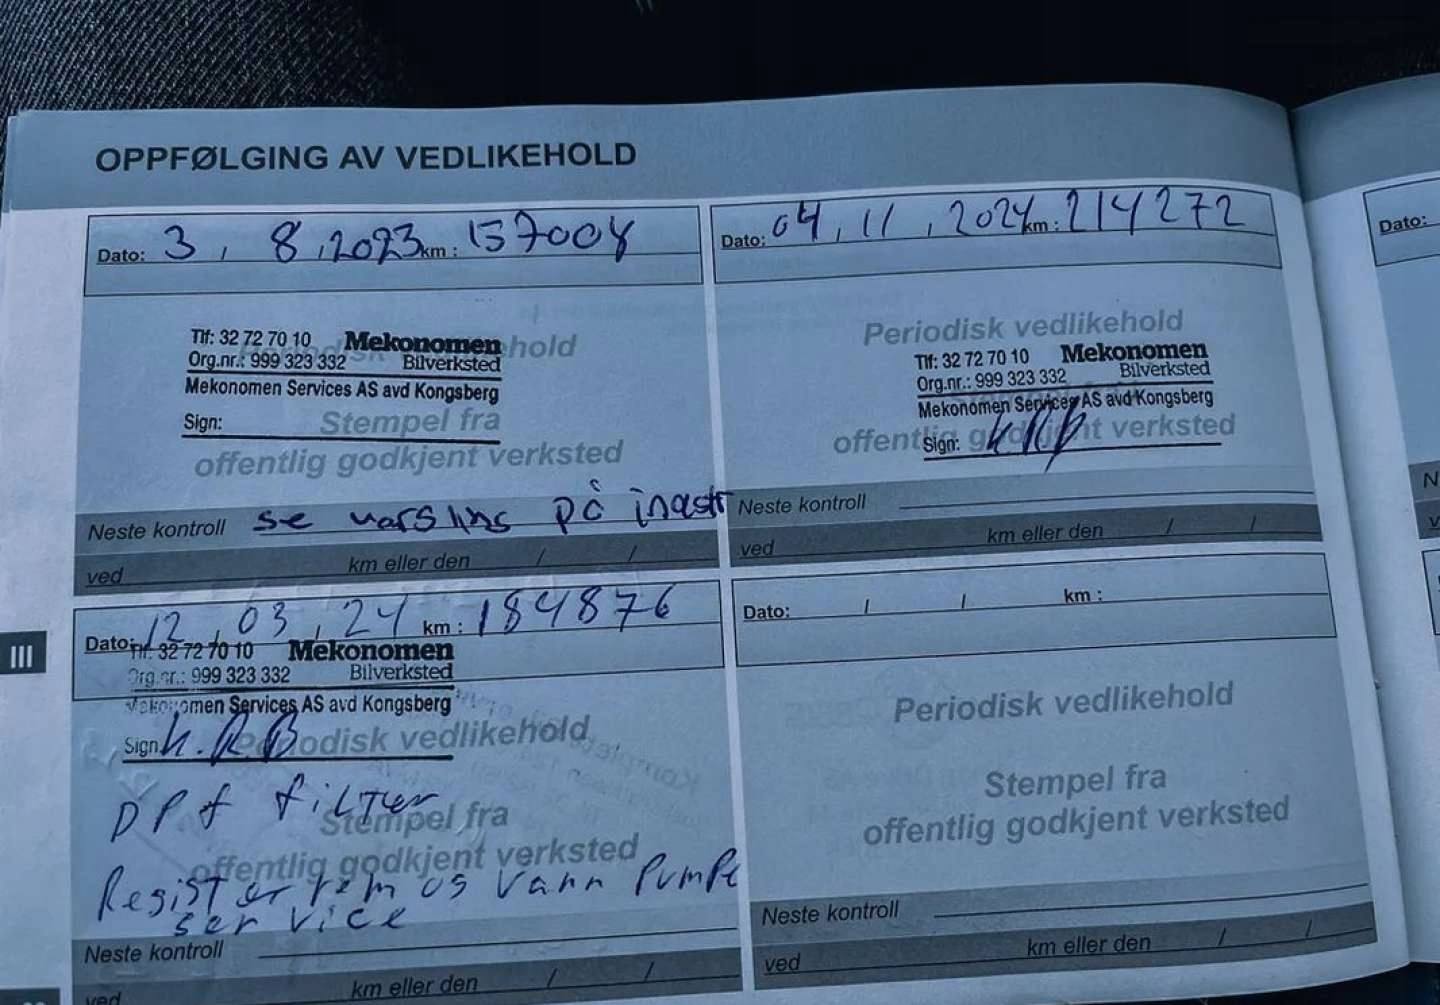 OPPFØLGING AV VEDLIKEHOLD
Dato: 3, 8, 2023 km: 157008
Tlf: 32 72 70 10 Mekonomen
Org.nr.: 999 323 332 Bilverksted
Mekonomen Services AS avd Kongsberg
Periodisk vedlikehold
Sign:
Stempel fra
offentlig godkjent verksted
Neste kontroll se varsling på inastr
ved km eller den / /
Dato: 04, 11, 2024 km: 214272
Periodisk vedlikehold
Tlf: 32 72 70 10 Mekonomen
Org.nr.: 999 323 332 Bilverksted
Mekonomen Services AS avd Kongsberg
Sign: KRB
offentlig godkjent verksted
Neste kontroll
ved km eller den / /
III
Dato: 12, 03, 24 km: 184876
Tlf: 32 72 70 10 Mekonomen
Org.nr.: 999 323 332 Bilverksted
Mekonomen Services AS avd Kongsberg
Sign K.R.B
Periodisk vedlikehold
DPf filter
Stempel fra
offentlig godkjent verksted
Register rem og vann Pumpe
service
Neste kontroll
ved km eller den / /
Dato: / / km:
Periodisk vedlikehold
Stempel fra
offentlig godkjent verksted
Neste kontroll
ved km eller den / /
Dato:
N
v